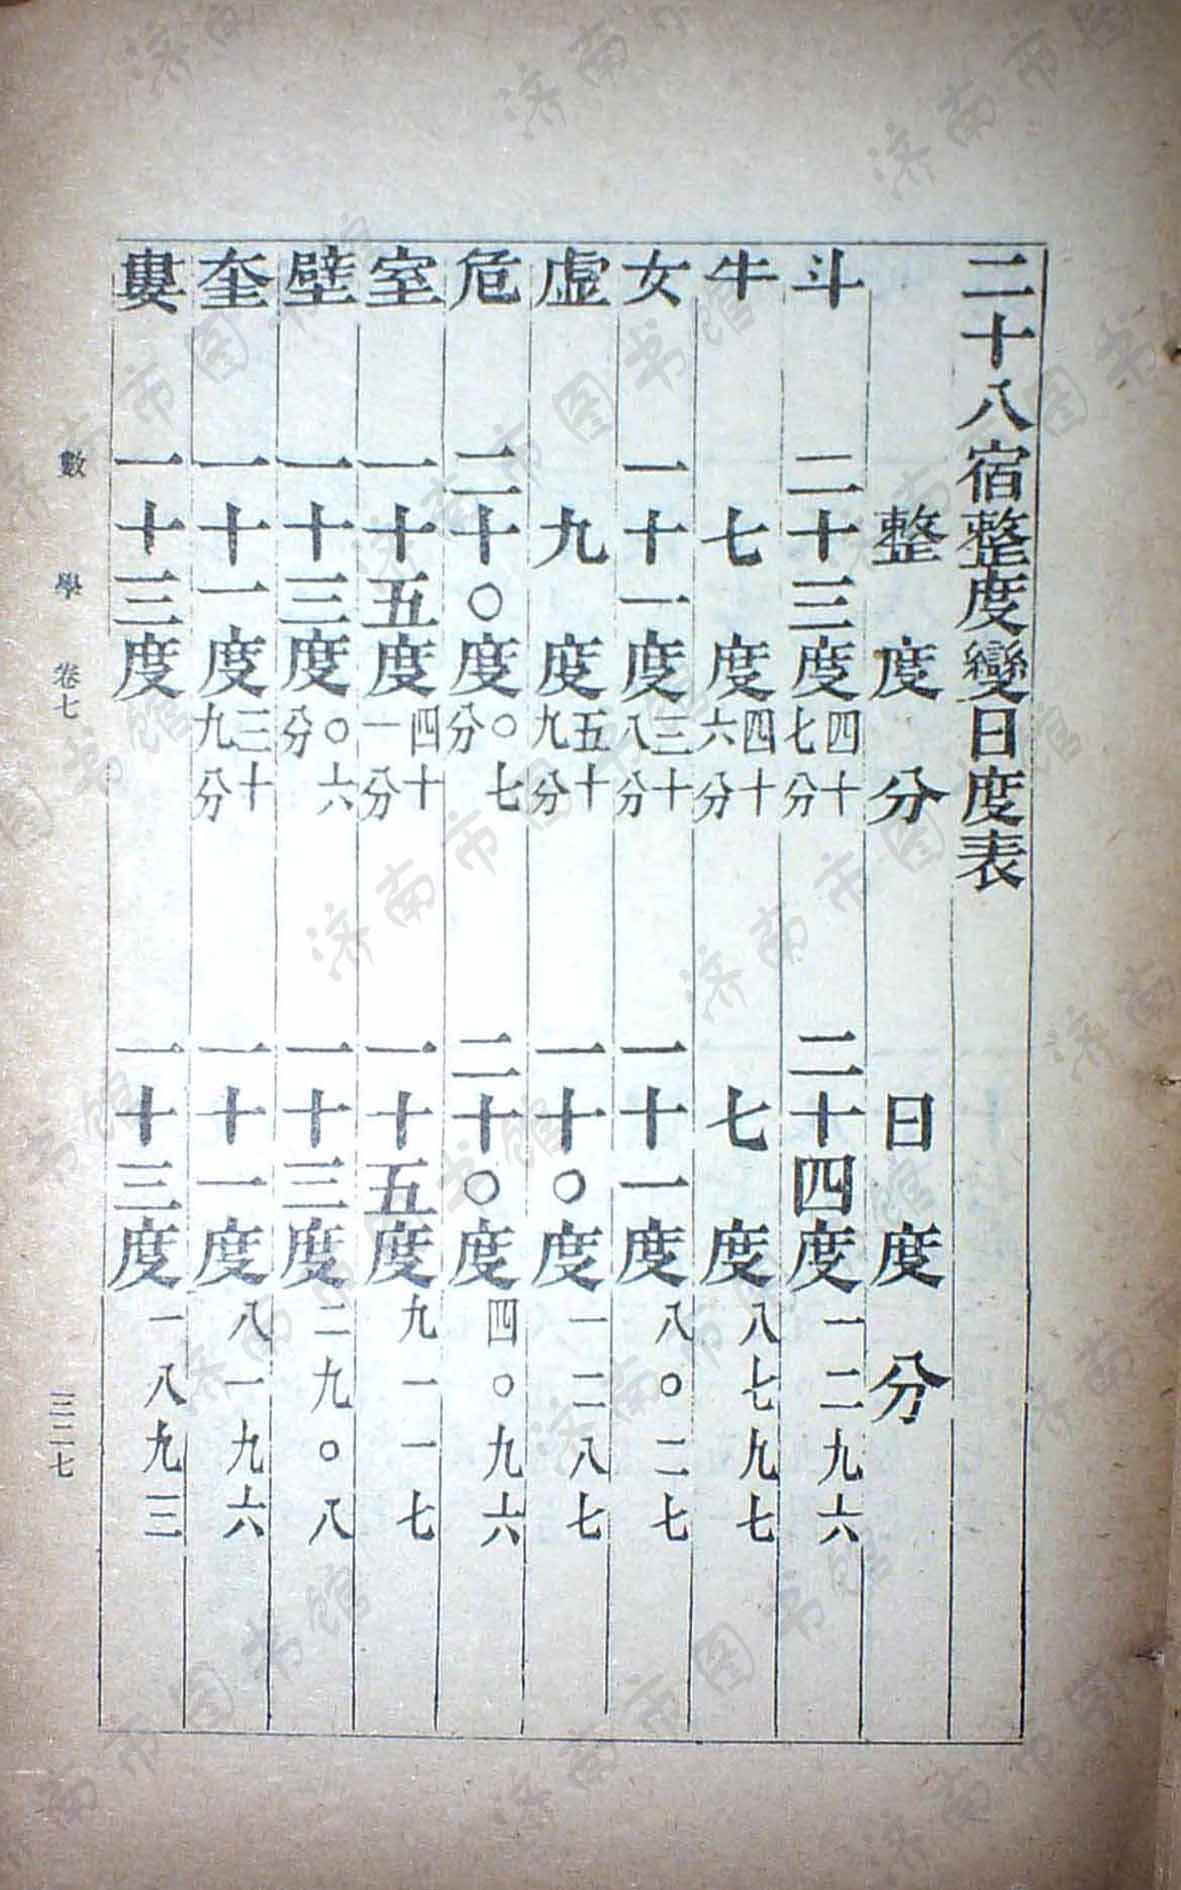 二十八宿整度變日度表
整度分 日度分
斗 二十三度四十七分 二十四度一二九六
牛 七度四十六分 七度八七九七
女 一十一度三十八分 一十一度八〇二七
虛 九度五十九分 一十〇度一二八七
危 二十〇度〇七分 二十〇度四〇九六
室 一十五度四十一分 一十五度九一一七
壁 一十三度〇六分 一十三度二九〇八
奎 一十一度三十九分 一十一度八一九六
婁 一十三度 一十三度一八九三
數學 卷七 三二七
济南市图书馆